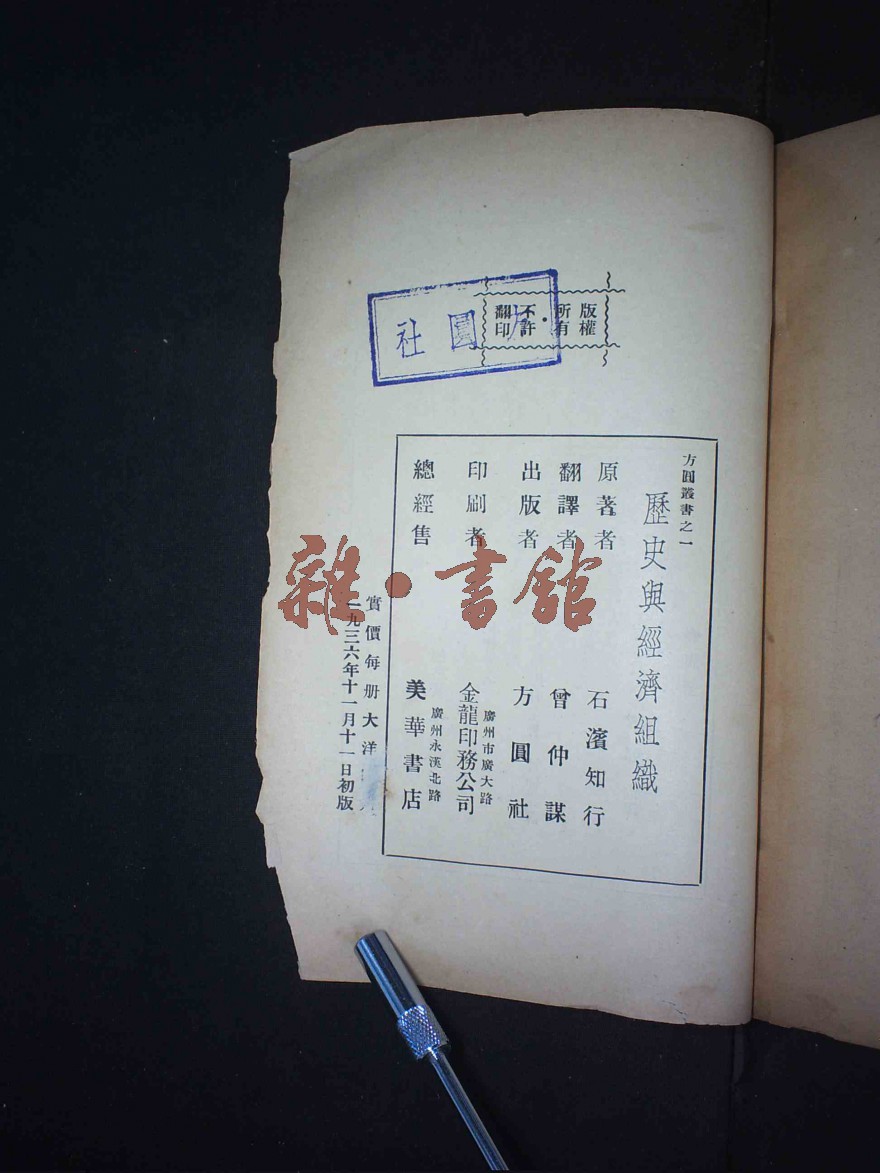 版權所有・不許翻印
方圓社
方圓叢書之一
歷史與經濟組織
原著者 石濱知行
翻譯者 曾仲謀
出版者 方圓社
印刷者 廣州市廣大路 金龍印務公司
總經售 廣州永漢北路 美華書店
實價每册大洋
一九三六年十一月十一日初版
雜・書館